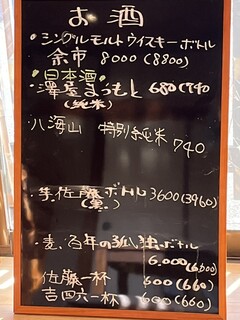 お酒
・シングルモルトウイスキーボトル
余市 8000(8800)
・日本酒・
澤屋まつもと 680(740
(純米)
八海山 特別純米 740
・芋、佐藤ボトル 3600(3960)
(黒)
・麦、百年の孤独ボトル
6,000(6,600)
佐藤一杯 600(660)
吉四六一杯 600(660)